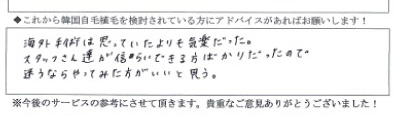 ◆これから韓国自毛植毛を検討されている方にアドバイスがあればお願いします！
海外手術は思っていたよりも気楽だった。
スタッフさん達が信らいできる方ばかりだったので
迷うならやってみた方がいいと思う。
※今後のサービスの参考にさせて頂きます。貴重なご意見ありがとうございました！